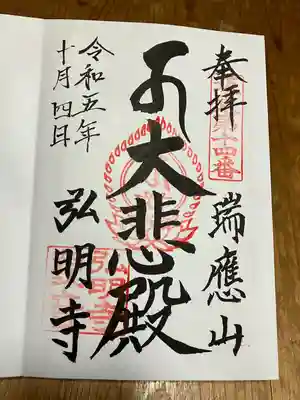 奉拝
十四番
瑞應山
大悲殿
令和五年
十月四日
弘明寺